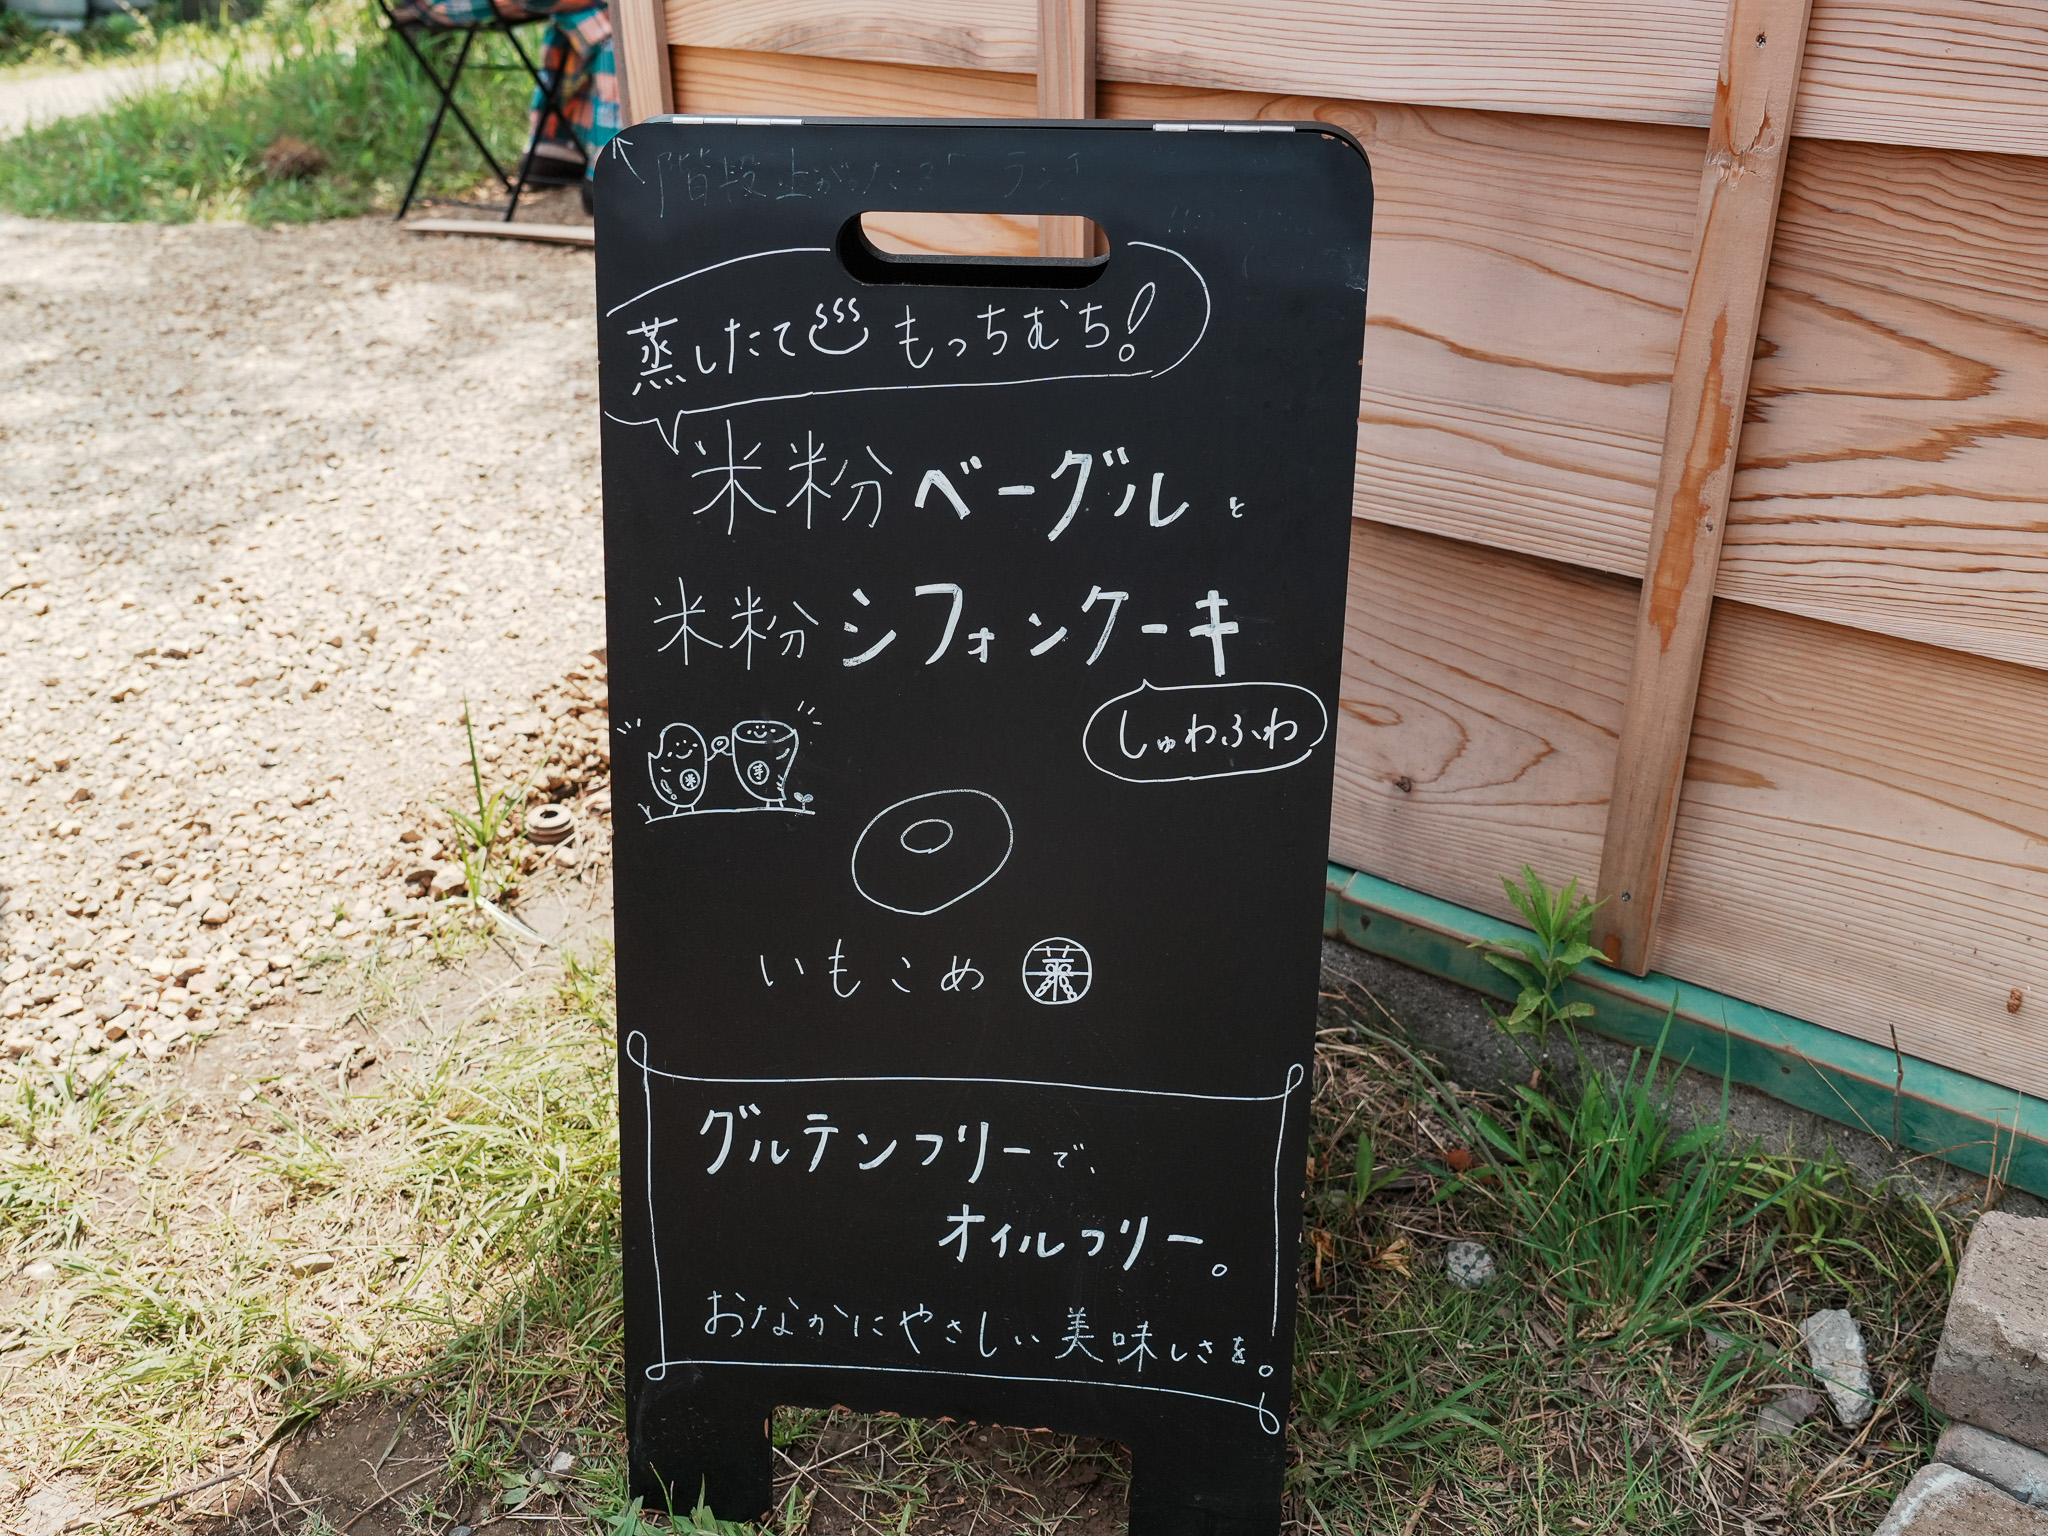 階段上がったる
蒸したて もっちむち!
米粉ベーグルと
米粉シフォンケーキ
しゅわふわ
米 芋
いもこめ
グルテンフリーで、
オイルフリー。
おなかにやさしい美味しさを。